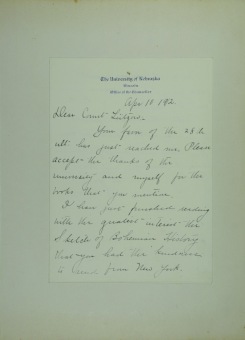 The University of Nebraska
Lincoln
Office of the Chancellor
Apr 10 192
Dear Count Lützow.
Your favor of the 28th
ult has just reached me. Please
accept the thanks of the
university and myself for the
books that you mention.
I have just finished reading
with the greatest interest the
Sketch of Bohemian History
that you had the kindness
to send from New York.